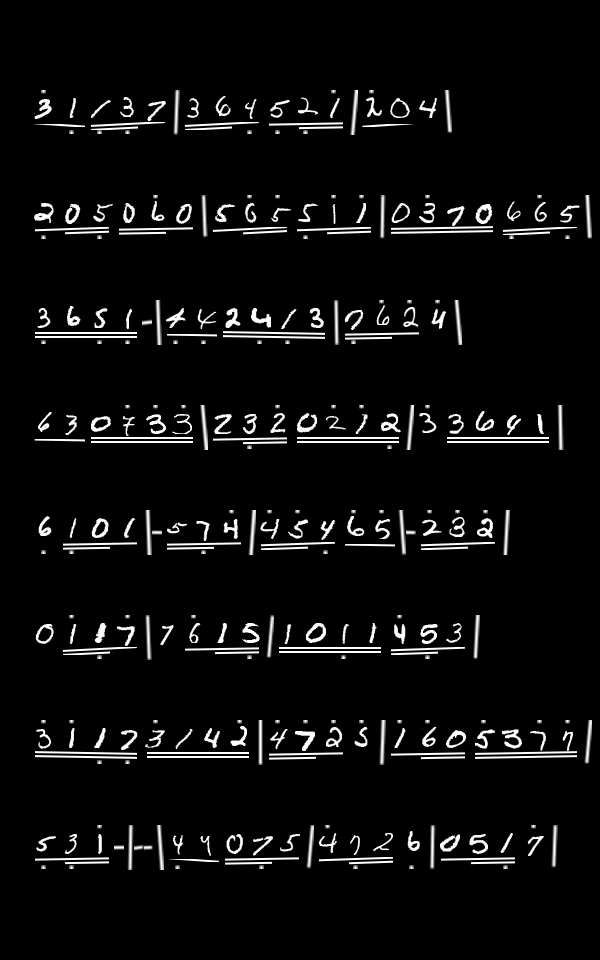 3 1 1 3 7 | 3 6 4 5 2 1 | 2 0 4 |
2 0 5 0 6 0 | 5 6 5 5 1 1 | 0 3 7 0 6 6 5 |
3 6 5 1 - | 4 4 2 4 1 3 | 7 6 2 4 |
6 3 0 7 3 3 | 2 3 2 0 2 1 2 | 3 3 6 4 1 |
6 1 0 1 | - 5 7 4 | 4 5 4 6 5 | - 2 3 2 |
0 1 1 7 | 7 6 1 5 | 1 0 1 1 4 5 3 |
3 1 1 7 3 1 4 2 | 4 7 2 5 | 1 6 0 5 3 7 7 |
5 3 1 - | - - | 4 4 0 7 5 | 4 7 2 6 | 0 5 1 7 |